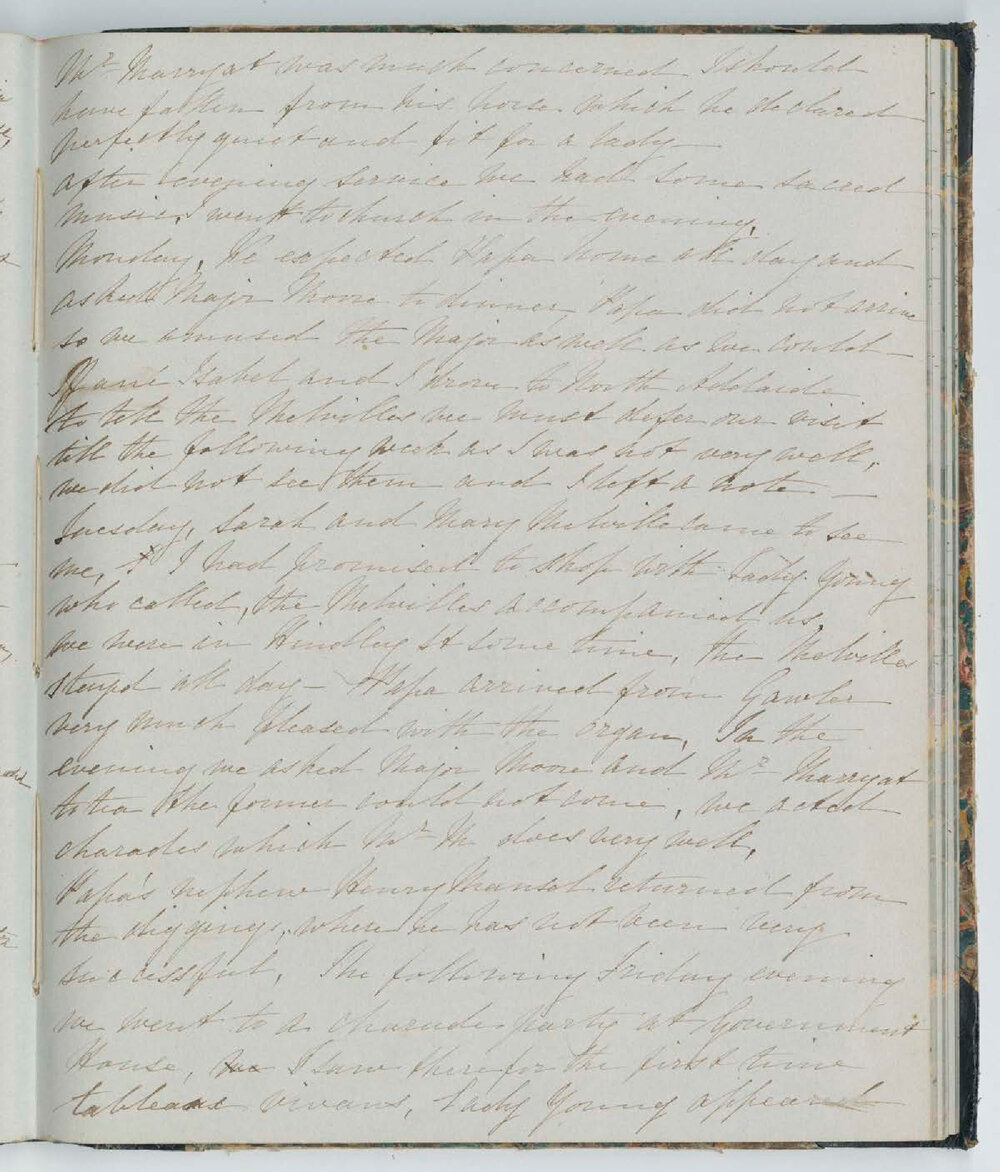 Mr Marryat was much concerned I should
have fallen from his horse which he declared
perfectly quiet and fit for a lady –
after evening service we had some sacred
music, I went to church in the evening,
Monday, We expected Papa home all day and
asked Major Moore to dinner, Papa did not arrive
so we amused the Major as well as we could –
Jane Isabel and I drove to North Adelaide
to tell the Melvilles we must defer our visit
till the following week as I was not very well,
we did not see them and I left a note –
Tuesday, Sarah and Mary Melville came to see
me, I had promised to shop with Lady Young
who called, the Melvilles accompanied us,
we were in Hindley St some time, the Melvilles
stayed all day – Papa arrived from Gawler
very much pleased with the organ, In the
evening we asked Major Moore and Mr Marryat
to tea the former could not come, we acted
charades which Mr M does very well,
Papa's nephew Henry Mansel returned from
the diggings, where he has not been very
successful, The following Friday evening
we went to a charade party at Government
House, I saw there for the first time
tableaux vivans, Lady Young appeared